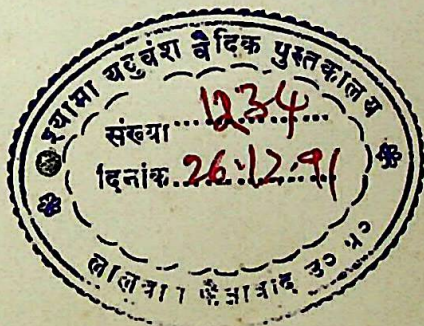 श्यामा यदुवंश वैदिक पुस्तकालय
संख्या 1234
दिनांक 26.12.91
फैजाबाद उ० प्र०